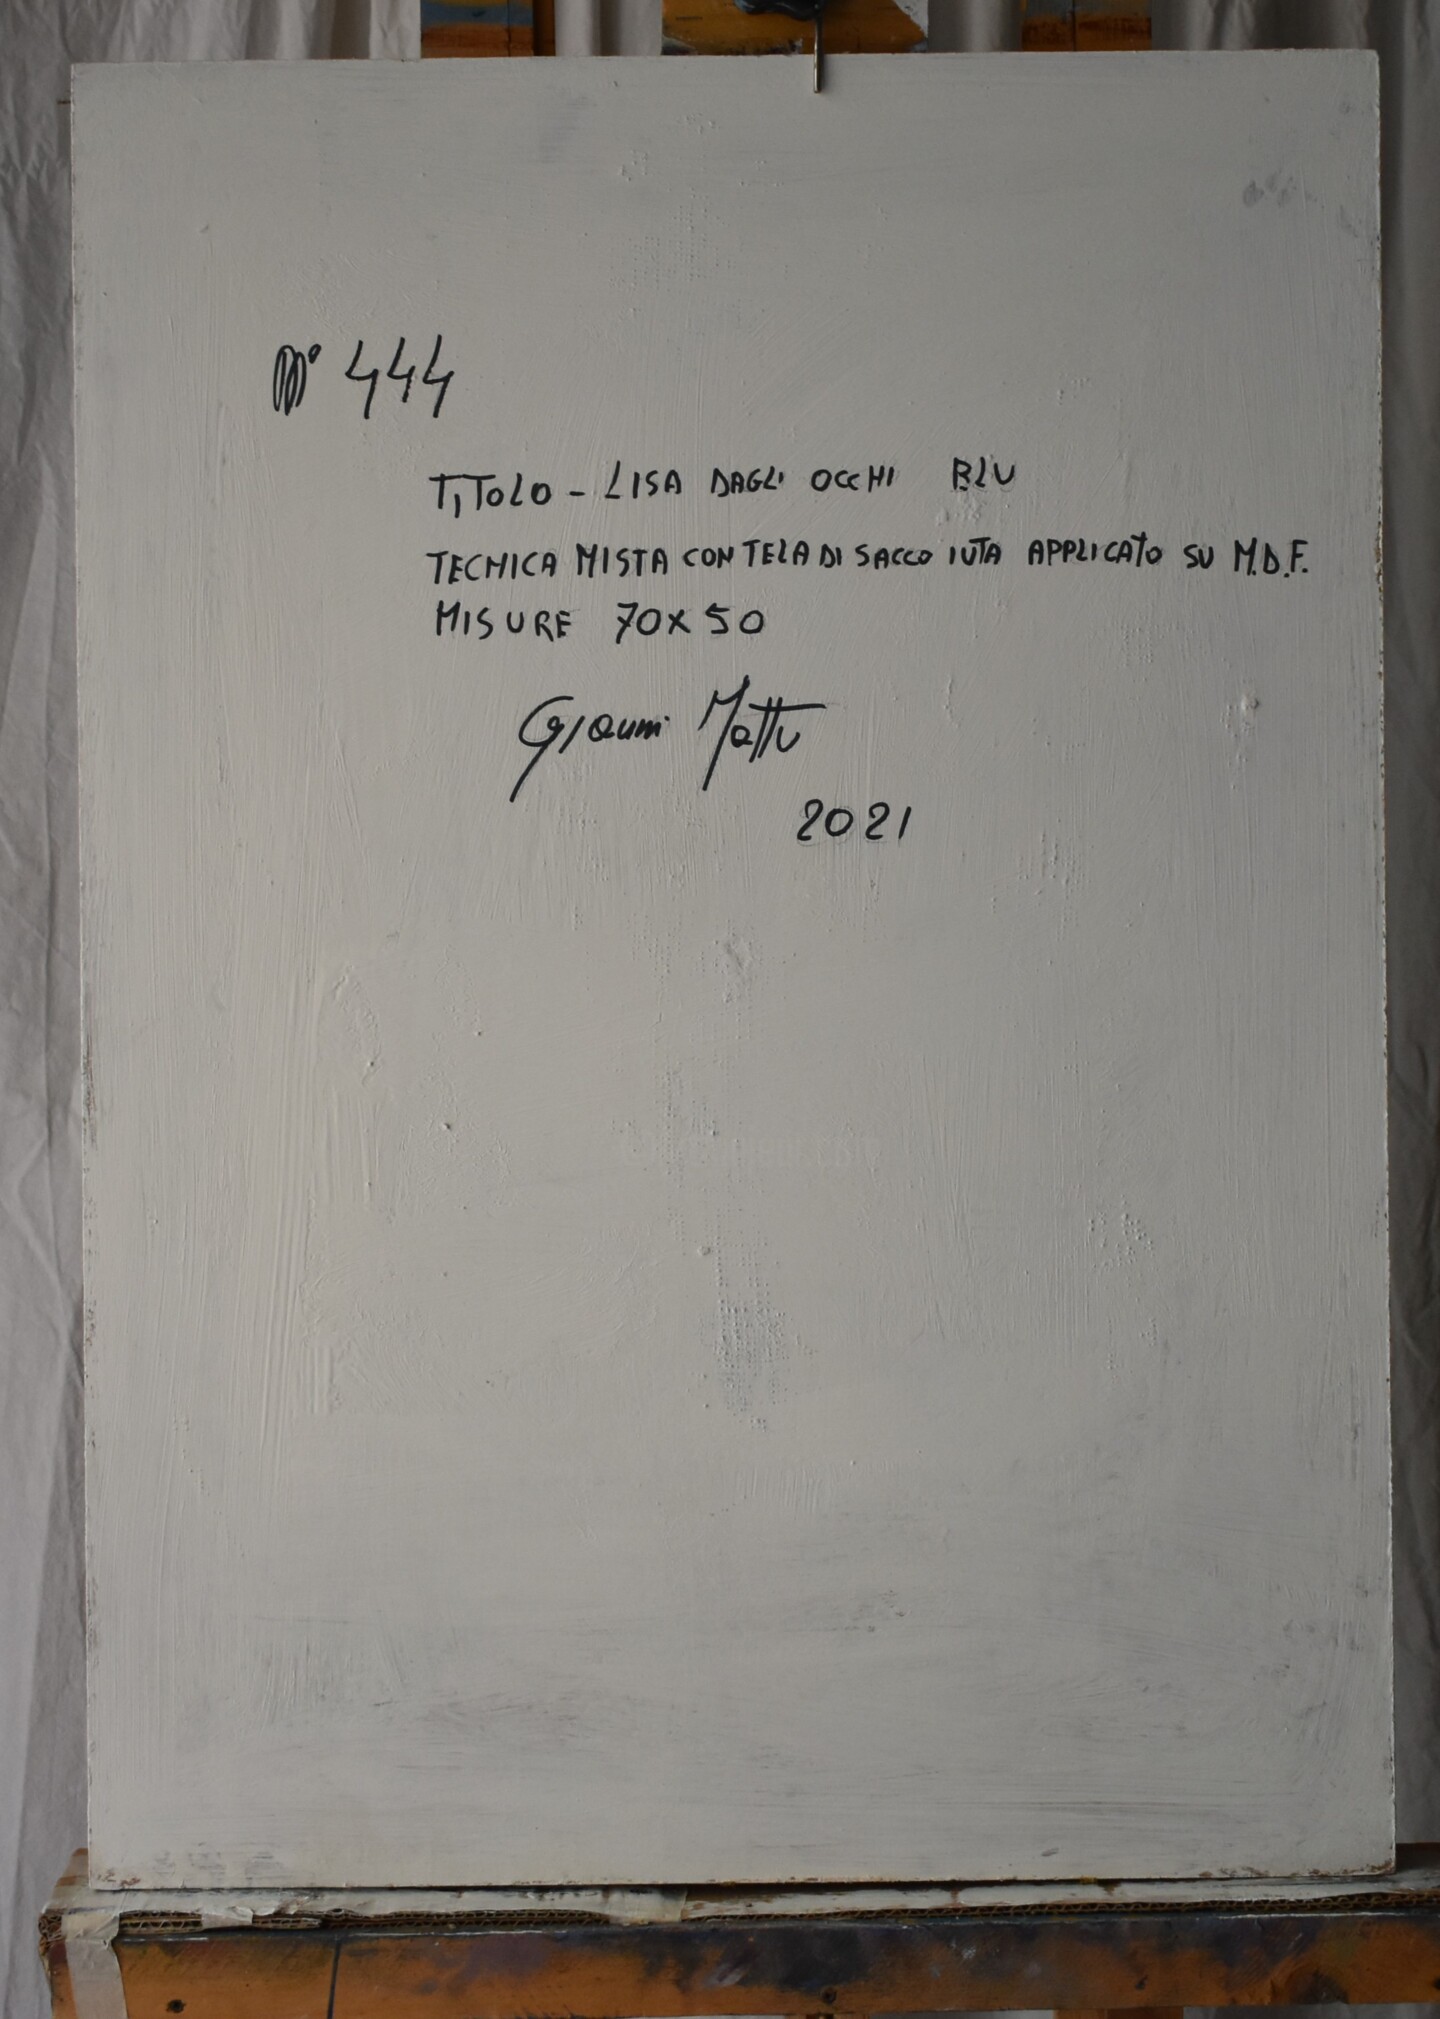 N° 444
TITOLO - LISA DAGLI OCCHI BLU
TECNICA MISTA CON TELA DI SACCO IUTA APPLICATO SU M.D.F.
MISURE 70X50
Gianni Mattu
2021